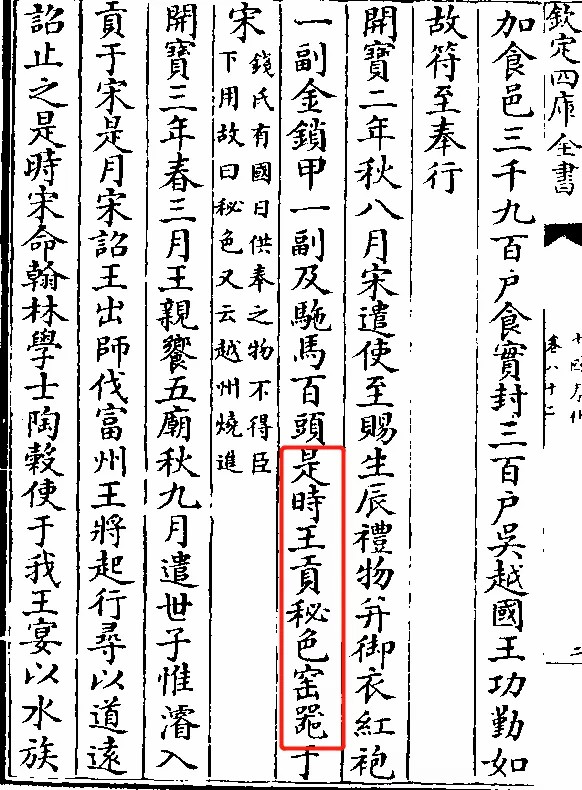 欽定四庫全書
加食邑三千九百戶食實封三百戶吳越國王功勤如
故符至奉行
開寶二年秋八月宋遣使至賜生辰禮物并御衣紅袍
一副金鎖甲一副及駞馬百頭是時王貢秘色窑噐于
宋
錢氏有國日供奉之物不得臣
下用故曰秘色又云越州燒進
開寶三年春三月王親饗五廟秋九月遣世子惟濬入
貢于宋是月宋詔王出師伐富州王將起行尋以道遠
詔止之是時宋命翰林學士陶穀使于我王宴以水族